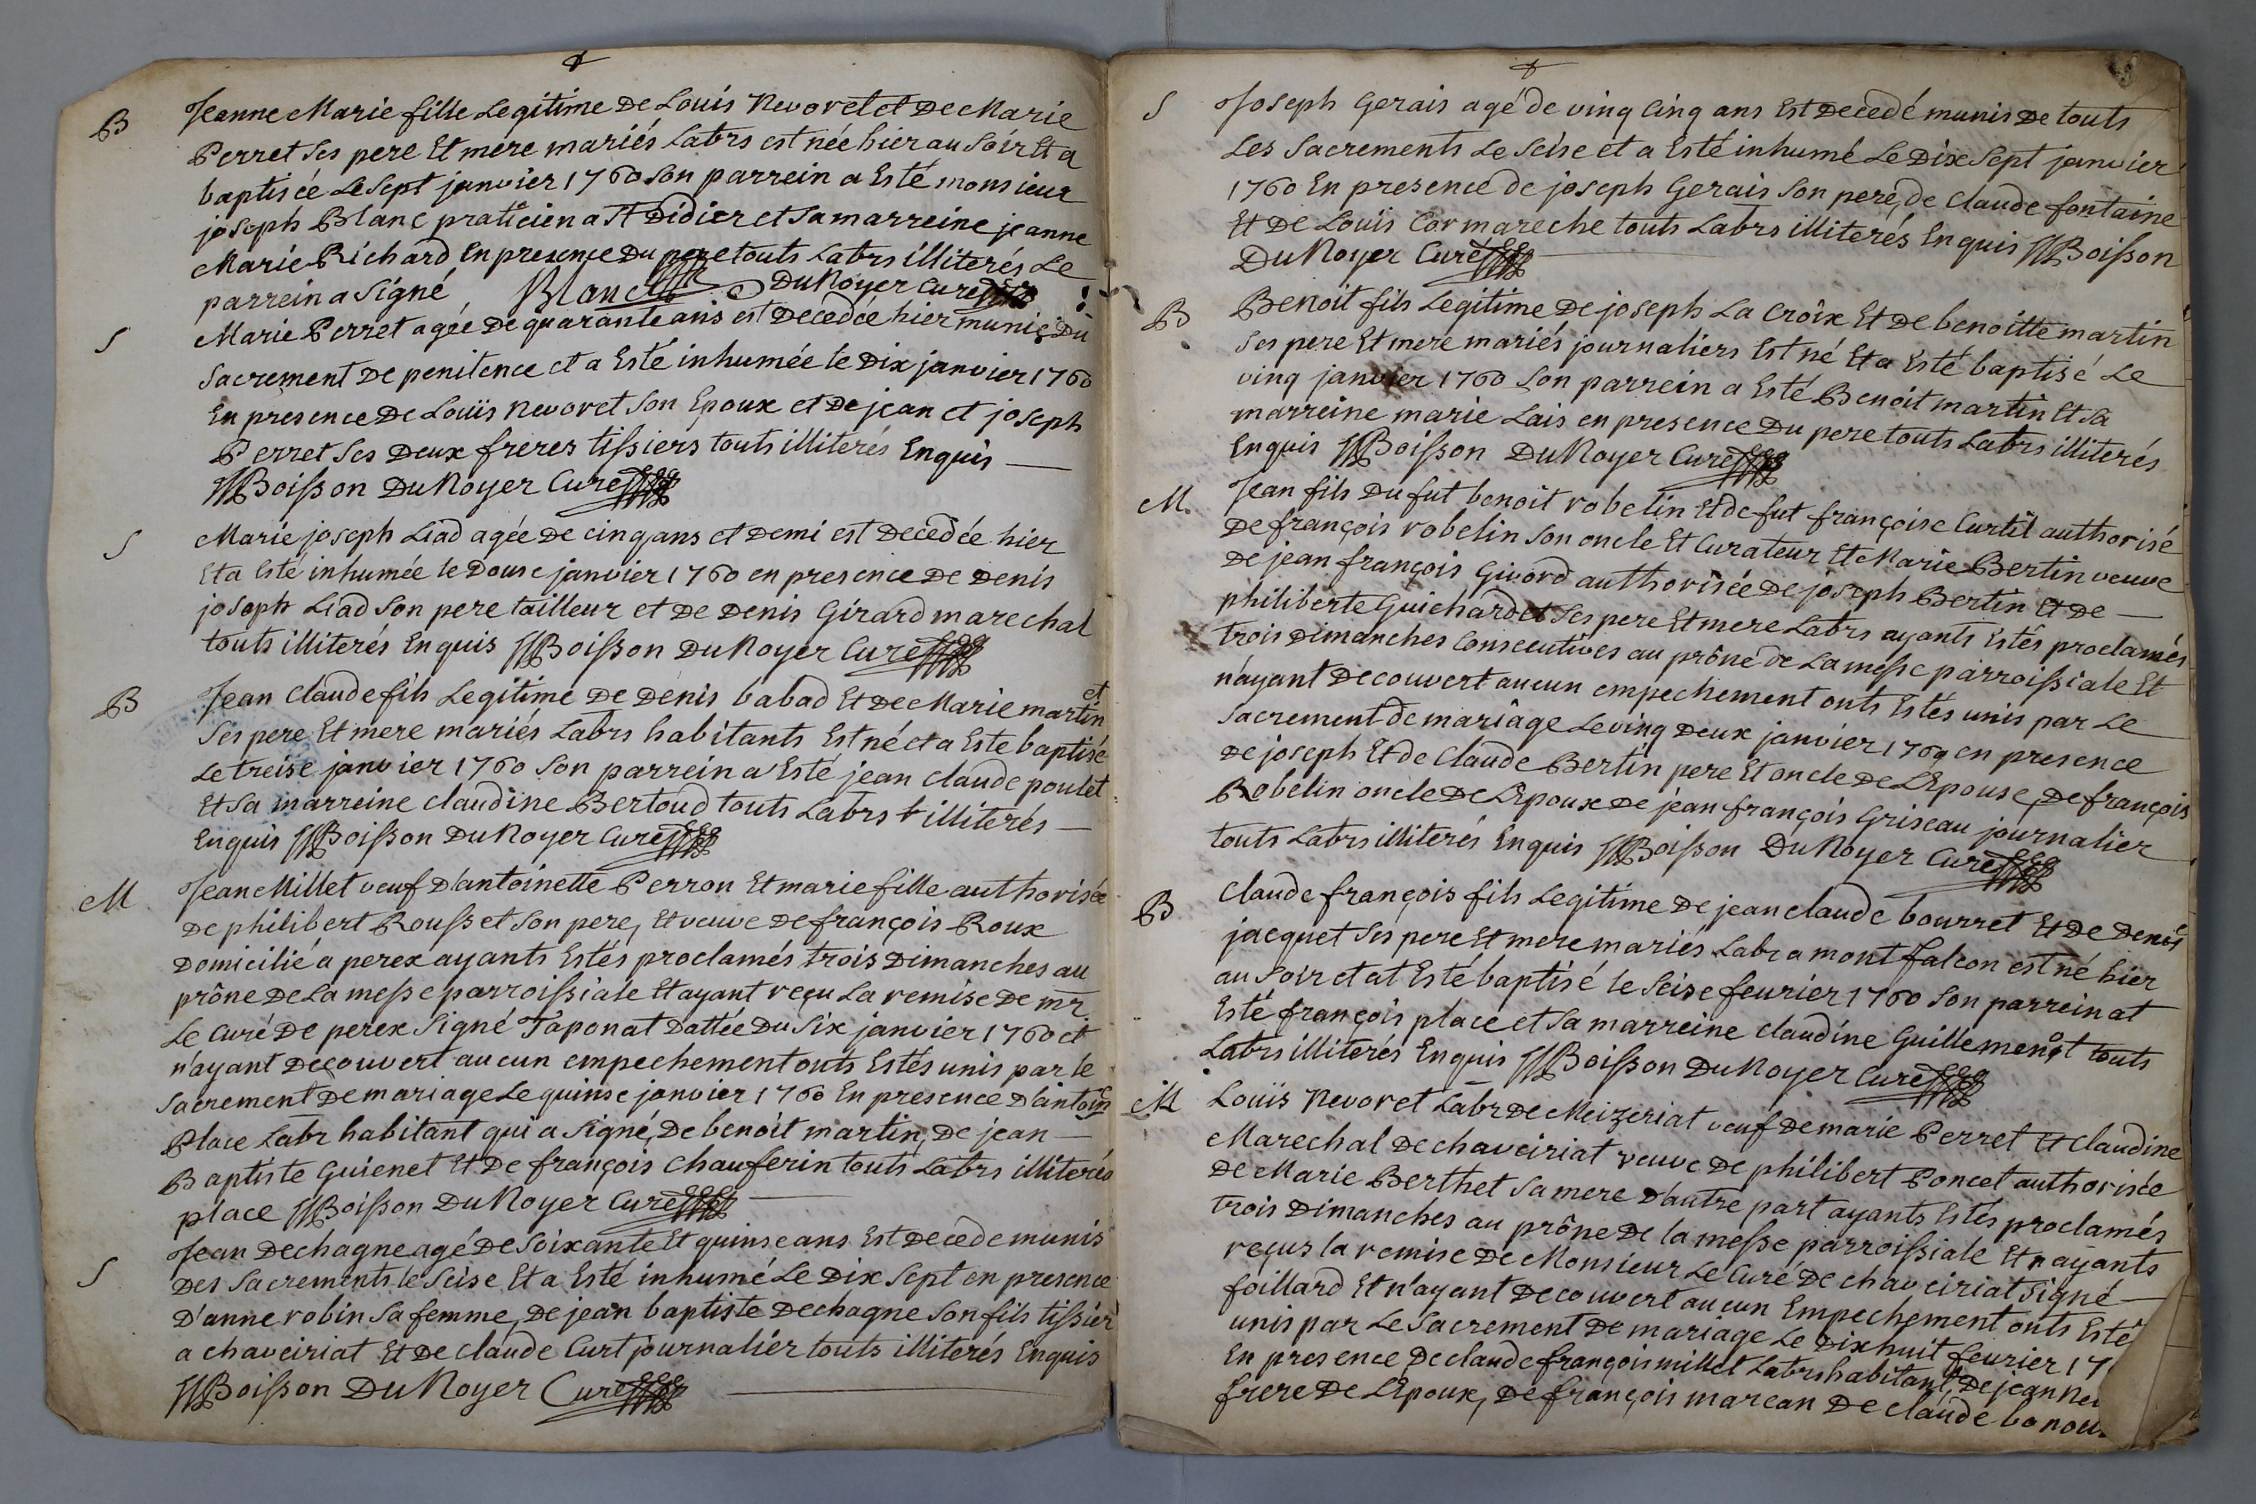 B Jeanne Marie fille Legitime De Louis Nevoret et De Marie
Perret ses pere Et mere mariés Labrs est née hier au Soir Et a
baptisée Le Sept janvier 1760 Son parrein a Esté monsieur
joseph Blanc praticien a St Didier et Sa marreine jeanne
Marie Richard En presence Du pere touts Labrs illiterés Le
parrein a Signé Blanc DuNoyer Curé
S Marie Perret agée De quarante ans est Decedée hier munie Du
Sacrement De penitence et a Esté inhumée le Dix janvier 1760
En presence De Louïs Nevoret Son Epoux et De jean et joseph
Perret Ses Deux freres tissiers touts illiterés Enquis
Boisson DuNoyer Curé
S Marie joseph Liad agée De cinq ans et Demi est Decedée hier
Et a Esté inhumée le Douse janvier 1760 en presence De Denis
joseph Liad Son pere tailleur et De Denis Girard marechal
touts illiterés Enquis Boisson DuNoyer Curé
B Jean Claude fils Legitime De Denis babad Et De Marie martin
et
Ses pere Et mere mariés Labrs habitants Est né et a Este baptisé
Le treise janvier 1760 Son parrein a Esté jean claude poulet
Et Sa marreine claudine Bertoud touts Labrs illiterés
Enquis Boisson DuNoyer Curé
M Jean Millet veuf D'antoinette Perron Et marie fille authorisée
De philibert Rousset Son pere, Et veuve De françois Roux
Domicilié a perex ayants Estés proclamés trois Dimanches au
prône De La messe parroissiale Et ayant reçu La remise De mr
Le Curé De perex Signé Taponat Dattée Du Six janvier 1760 et
n'ayant Decouvert aucun empechement onts Estés unis par le
Sacrement De mariage Le quinse janvier 1760 En presence D'antoin
Place Labr habitant qui a Signé, De benoit martin, De jean
Baptiste Guienet Et De françois Chauferin touts Labrs illiterés
place Boisson DuNoyer Curé
S Jean Dechagne agé De Soixante Et quinse ans Est Decede munis
Des Sacrements le Seise Et a Esté inhumé Le Dix Sept en presence
D'anne robin Sa femme, De jean baptiste Dechagne Son fils tissier
a chaveiriat Et De Claude Curt journalier touts illiterés Enquis
Boisson DuNoyer Curé
S Joseph Gerais agé de vinq Cinq ans Est Decedé munis De touts
Les Sacrements Le Seise et a Esté inhumé Le Dix Sept janvier
1760 En presence de joseph Gerais Son pere, de Claude fontaine
Et De Louïs Cormareche touts Labrs illiterés Enquis Boisson
DuNoyer Curé
B Benoit fils Legitime De joseph La Croix Et De benoitte martin
Ses pere Et mere mariés journaliers Est né Et a Esté baptisé Le
vinq janvier 1760 Son parrein a Esté Benoit martin Et Sa
marreine marie Lais en presence Du pere touts Labrs illiterés
Enquis Boisson DuNoyer Curé
M. Jean fils Du fut benoit robelin Et de fut françoise Curtil authorisé
De françois robelin Son oncle Et Curateur Et Marie Bertin veuve
De jean françois Givord authorisée De joseph Bertin Et De
philiberte Guichard Ses pere Et mere Labrs ayants Estés proclamés
trois Dimanches Consecutives au prône de La messe parroissiale Et
n'ayant Decouvert aucun empechement onts Estés unis par Le
Sacrement de mariage Le vinq Deux janvier 1760 en presence
De joseph Et de Claude Bertin pere Et oncle De L'Epouse, De françois
Robelin oncle De L'Epoux De jean françois Griseau journalier
touts Labrs illiterés Enquis Boisson DuNoyer Curé
B Claude françois fils Legitime De jean claude bourret Et De Denise
jacquet Ses pere Et mere mariés Labr a mont falcon est né hier
au Soir et at Esté baptisé le Seise feurier 1760 Son parrein at
Esté françois place et Sa marreine Claudine Guillemenot touts
Labrs illiterés Enquis Boisson DuNoyer Curé
M Louïs Nevoret Labr De Meizeriat veuf De marie Perret Et Claudine
Marechal De chaveiriat veuve De philibert Poncet authorisée
De Marie Berthet Sa mere D'autre part ayants Estés proclamés
trois Dimanches au prône De la messe parroissiale Et ayants
reçus la remise De Monsieur Le Curé De chaveiriat Signé
foillard Et n'ayant Decouvert aucun Empechement onts Esté
unis par Le Sacrement De mariage Le Dix huit feurier 17
En presence De claude françois millet Labrs habitant, De jean Ne
frere De L'Epoux, De françois marean De Claude bonou